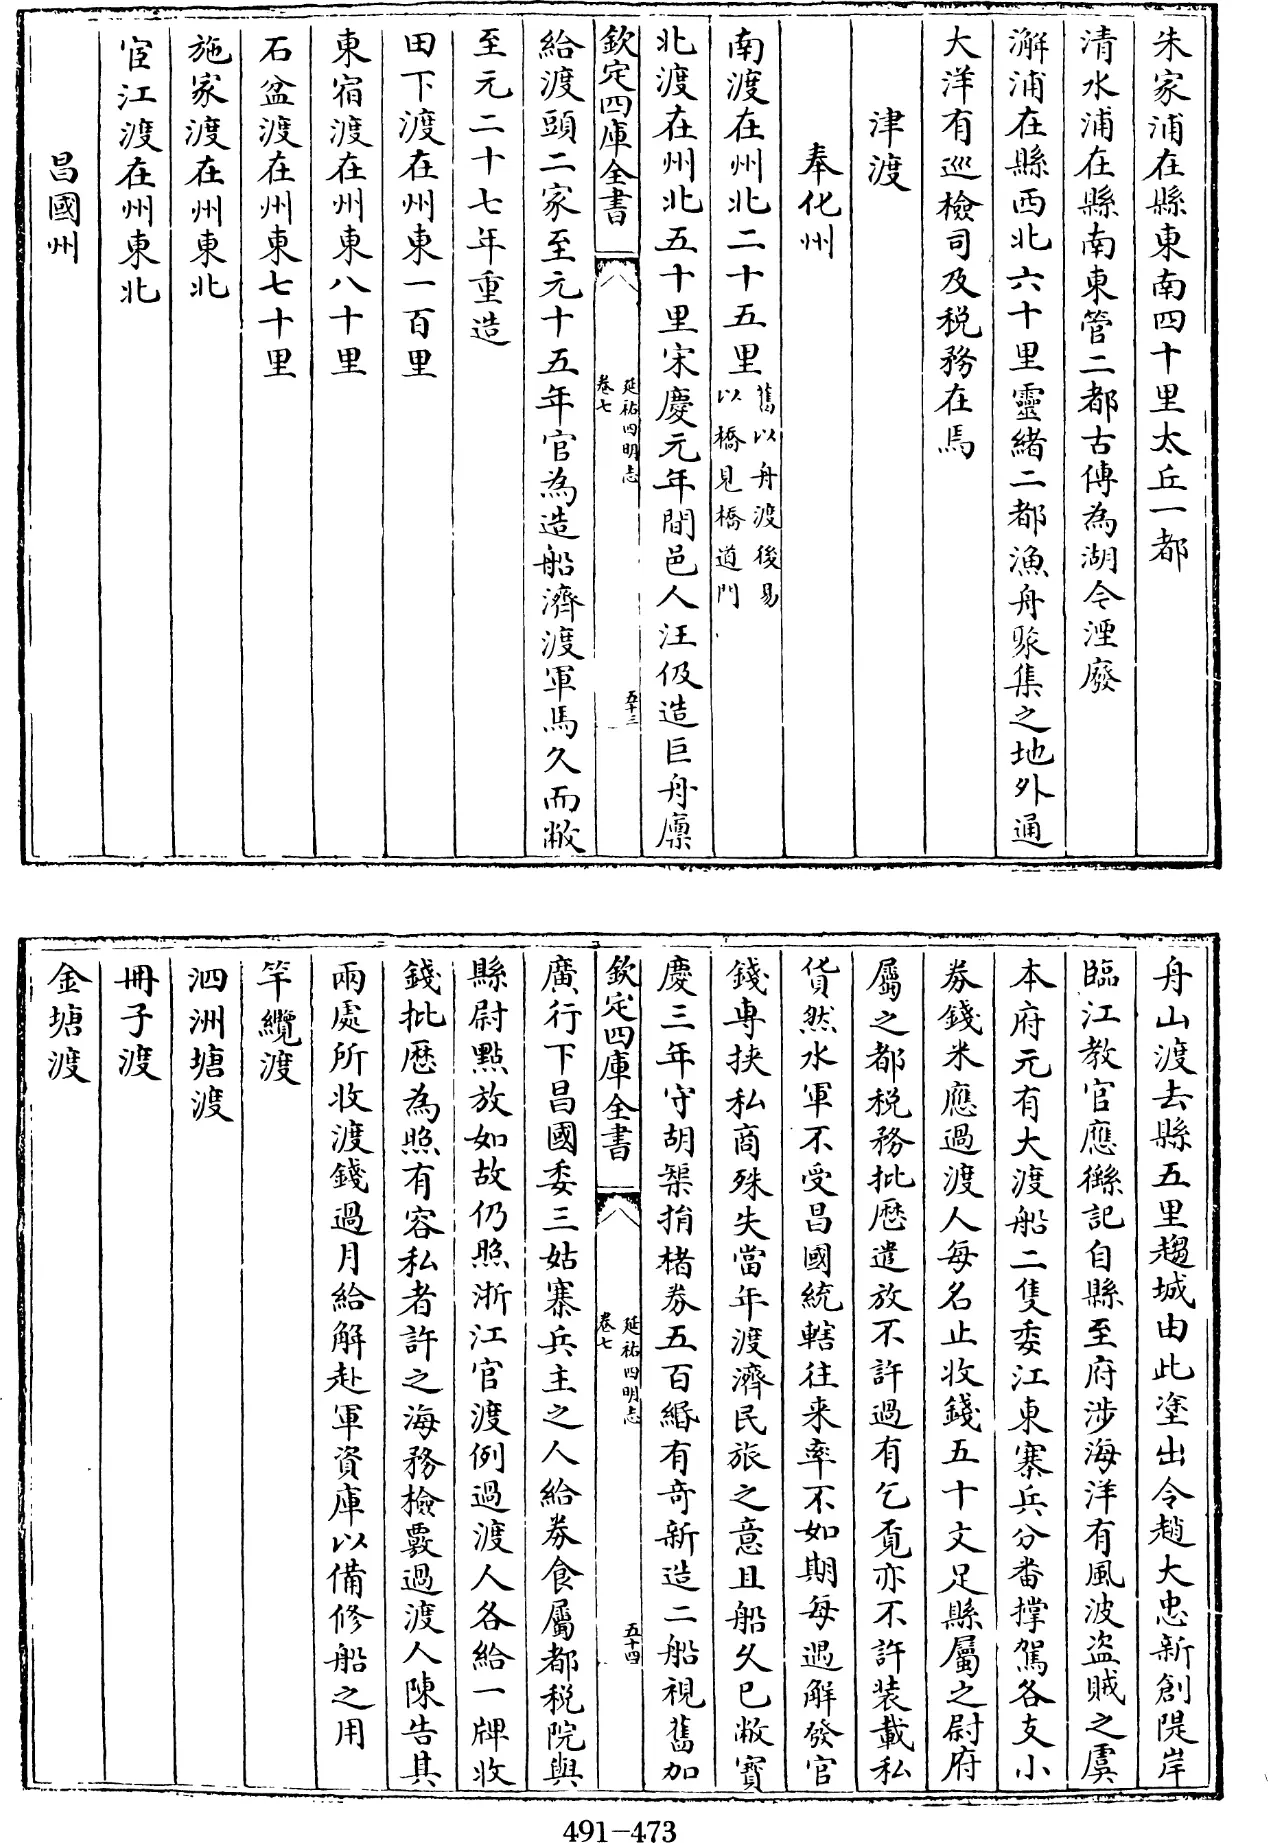 朱家浦在縣東南四十里太丘一都
清水浦在縣南東管二都古傳為湖今湮廢
澥浦在縣西北六十里靈緒二都漁舟聚集之地外通
大洋有巡檢司及税務在焉
津渡
奉化州
南渡在州北二十五里舊以舟渡後易
以橋見橋道門
北渡在州北五十里宋慶元年間邑人汪伋造巨舟廪
欽定四庫全書
延祐四明志
卷七
五十三
給渡頭二家至元十五年官為造船濟渡軍馬久而敝
至元二十七年重造
田下渡在州東一百里
東宿渡在州東八十里
石盆渡在州東七十里
施家渡在州東北
宦江渡在州東北
昌國州
舟山渡去縣五里趨城由此塗出令趙大忠新創隄岸
臨江教官應𦅸記自縣至府涉海洋有風波盜賊之虞
本府元有大渡船二隻委江東寨兵分番撑駕各支小
劵錢米應過渡人每名止收錢五十文足縣屬之尉府
屬之都税務批歴遣放不許過有乞覓亦不許装載私
貨然水軍不受昌國統轄往来率不如期每遇解發官
錢專挾私商殊失當年渡濟民旅之意且船久已敝寳
慶三年守胡榘捐楮劵五百緡有奇新造二船視舊加
欽定四庫全書
延祐四明志
卷七
五十四
廣行下昌國委三姑寨兵主之人給劵食屬都税院與
縣尉點放如故仍照浙江官渡例過渡人各給一牌收
錢批歴為照有容私者許之海務檢覈過渡人陳告其
兩處所收渡錢過月給解赴軍資庫以備修船之用
竿纜渡
泗洲塘渡
冊子渡
金塘渡
491-473